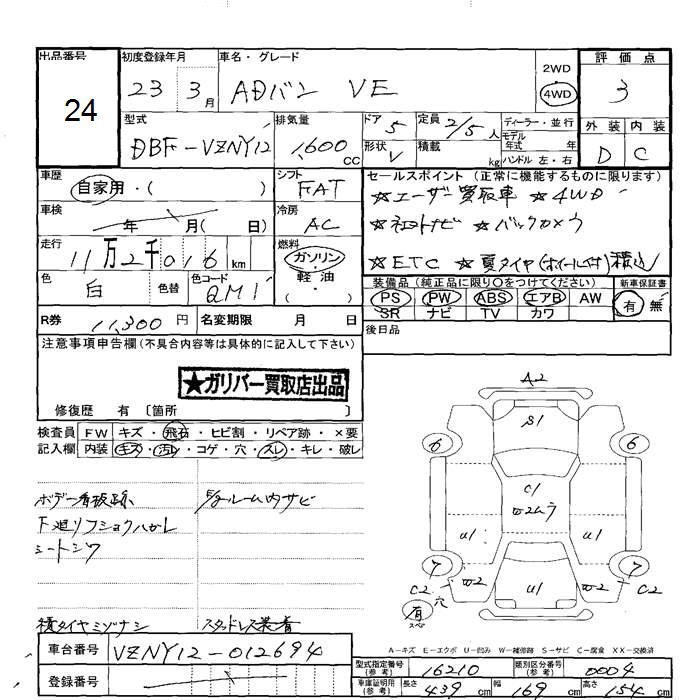 出品番号 24
初度登録年月 23 3月
車名・グレード ADバン VE
2WD
4WD
評価点 3
外装 D 内装 C
型式 DBF-VZNY12
排気量 1,600 CC
ドア 5
形状 V
定員 2/5人
積載 kg
ディーラー・並行
モデル年式 年
ハンドル 左・右
車歴 自家用・( )
シフト FAT
セールスポイント (正常に機能するものに限ります)
☆ユーザー買取車 ☆4WD
☆ ナビ ☆バックカメラ
☆ETC ☆夏タイヤ(ホイール付)積込
車検 年 月( 日)
冷房 AC
走行 11万2千016 km
燃料 ガソリン・軽油・( )
色 白 色替 色コード QM1
装備品 (純正品に限り○をつけてください)
PS PW ABS エアB AW
SR ナビ TV カワ
新車保証書 有 無
R券 11,300円 名変期限 月 日
後日品
注意事項申告欄(不具合内容等は具体的に記入して下さい)
★ガリバー買取店出品
修復歴 有〔箇所 〕
検査員記入欄
FW キズ・飛石・ヒビ割・リペア跡・×要
内装 キズ・汚レ・コゲ・穴・スレ・キレ・破レ
ボデー看板跡
下廻リフショクハガレ
シートシワ
ルーム内サビ
積タイヤミゾナシ
スタッドレス装着
A2
S1
6 6
C1
W2ムラ
U1 U1
7 7
W2 U1 W2
C2穴 C2
有 スペア
A-キズ E-エクボ U-凹み W-補修跡 S-サビ C-腐食 XX-交換済
車台番号 VZNY12-012694
登録番号
型式指定番号(参考) 16210 類別区分番号(参考) 0004
車庫証明用(参考) 長さ 439cm 幅 169cm 高さ 154cm